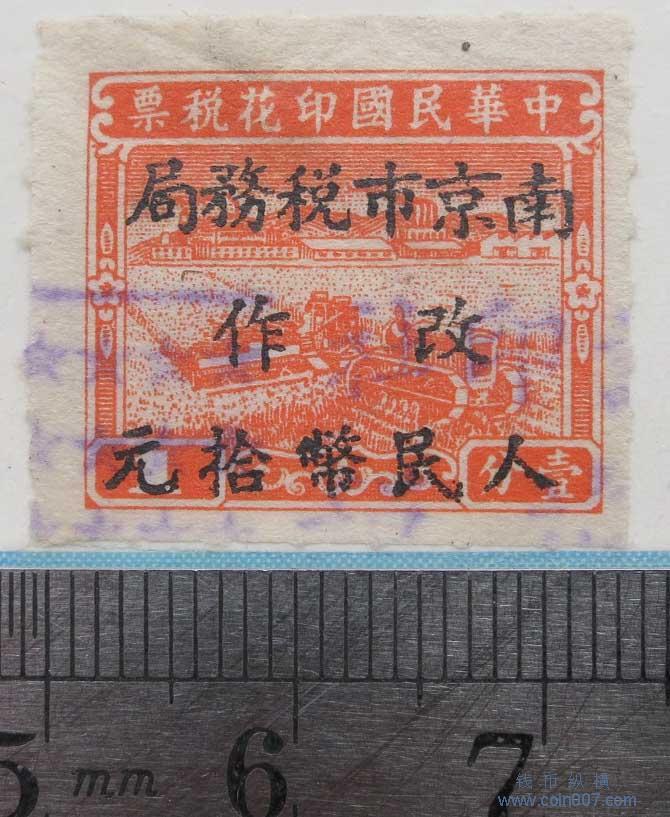 中華民國印花税票
南京市税務局
改作
人民幣拾元
壹分
5 mm 6 7
钱币纵横
www.coin807.com